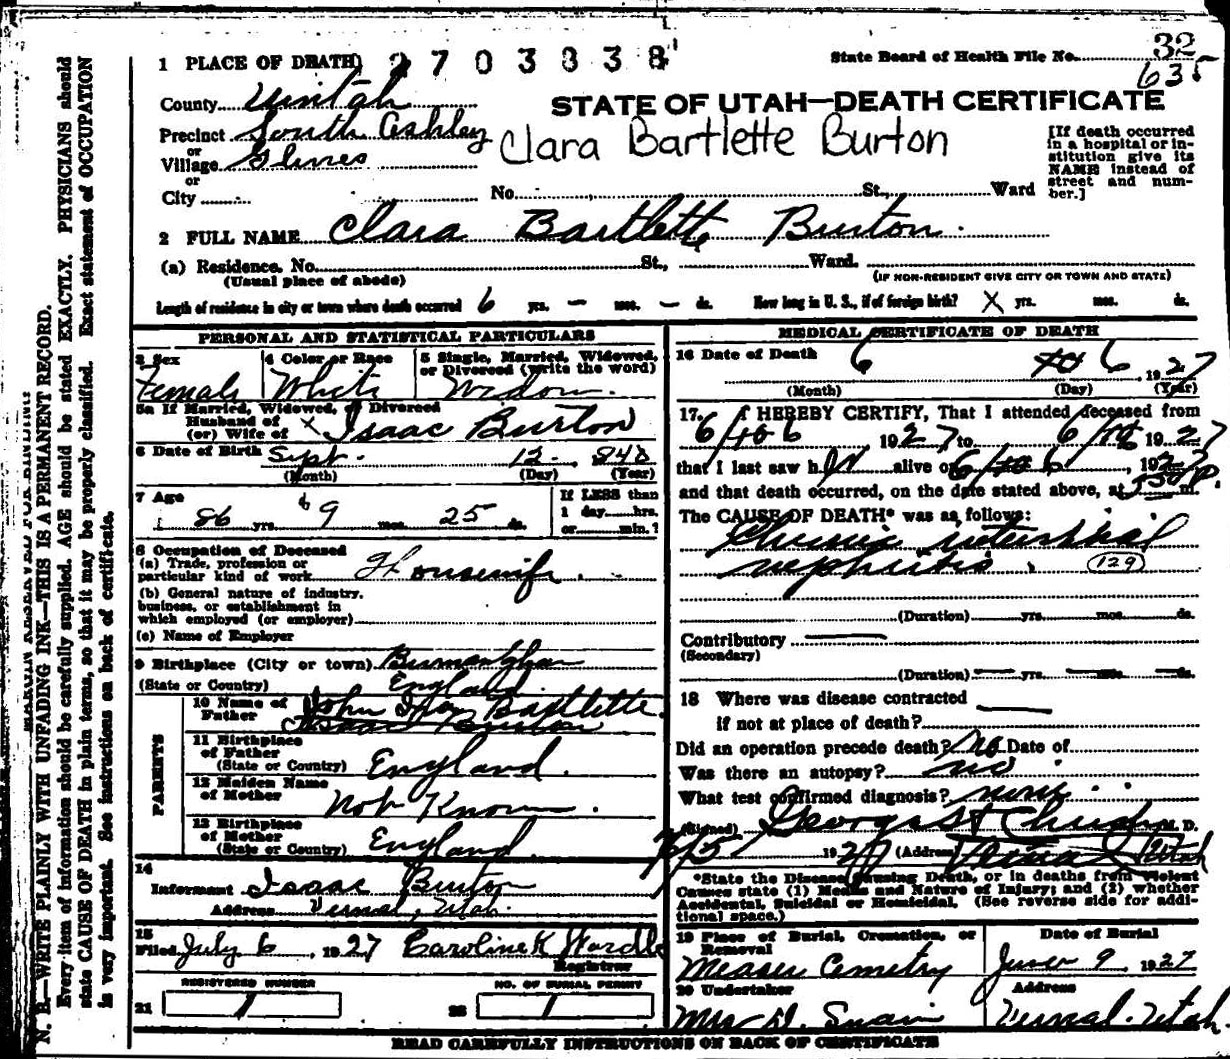 32
State Board of Health File No.
635
1 PLACE OF DEATH 2703838
County Uintah
STATE OF UTAH—DEATH CERTIFICATE
Precinct South Ashley
or
Village Glines
or
City
Clara Bartlette Burton
[If death occurred
in a hospital or in-
stitution give its
NAME instead of
street and num-
ber.]
No. St., Ward
2 FULL NAME Clara Bartlette Burton.
(a) Residence. No. St., Ward.
(Usual place of abode) (IF NON-RESIDENT GIVE CITY OR TOWN AND STATE)
Length of residence in city or town where death occurred 6 yrs. — mos. — ds. How long in U. S., if of foreign birth? X yrs. mos. ds.
PERSONAL AND STATISTICAL PARTICULARS
3 Sex Female
4 Color or Race White
5 Single, Married, Widowed,
or Divorced (write the word)
Widow.
5a If Married, Widowed, or Divorced
Husband of
(or) Wife of X Isaac Burton
6 Date of Birth Sept. 12 848
(Month) (Day) (Year)
7 Age
86 yrs. 9 mos. 25 ds.
If LESS than
1 day hrs.
or min.?
8 Occupation of Deceased
(a) Trade, profession or
particular kind of work Housewife.
(b) General nature of industry,
business, or establishment in
which employed (or employer)
(c) Name of Employer
9 Birthplace (City or town)
(State or Country) England
PARENTS
10 Name of
Father John Bartlette
Isaac Burton
11 Birthplace
of Father
(State or Country) England.
12 Maiden Name
of Mother Not Known.
13 Birthplace
of Mother
(State or Country) England.
14
Informant Isaac Burton
Address Vernal, Utah.
15
Filed July 6, 1927 Caroline K Wardle
Registrar
REGISTERED NUMBER
21 1
NO. OF BURIAL PERMIT
22 1
MEDICAL CERTIFICATE OF DEATH
16 Date of Death 6 6, 1927
(Month) (Day) (Year)
17. I HEREBY CERTIFY, That I attended deceased from
6 6 1927 to 6 1927
that I last saw her alive on 6 6, 192
and that death occurred, on the date stated above, at m.
The CAUSE OF DEATH* was as follows:
Chronic interstitial
nephritis. 129
(Duration) yrs. mos. ds.
Contributory
(Secondary)
(Duration) yrs. mos. ds.
18 Where was disease contracted
if not at place of death?
Did an operation precede death? No Date of
Was there an autopsy? no
What test confirmed diagnosis? none
(Signed) George M. D.
7/5 1927 (Address) Vernal Utah
*State the Disease Causing Death, or in deaths from Violent
Causes state (1) Means and Nature of Injury; and (2) whether
Accidental, Suicidal or Homicidal. (See reverse side for addi-
tional space.)
19 Place of Burial, Cremation, or
Removal
Maeser Cemetry
Date of Burial
June 9, 1927
20 Undertaker
Mrs D. Swain
Address
Vernal. Utah.
READ CAREFULLY INSTRUCTIONS ON BACK OF CERTIFICATE
MARGIN RESERVED FOR BINDING
N. B.—WRITE PLAINLY WITH UNFADING INK—THIS IS A PERMANENT RECORD.
Every item of information should be carefully supplied. AGE should be stated EXACTLY. PHYSICIANS should
state CAUSE OF DEATH in plain terms, so that it may be properly classified. Exact statement of OCCUPATION
is very important. See instructions on back of certificate.